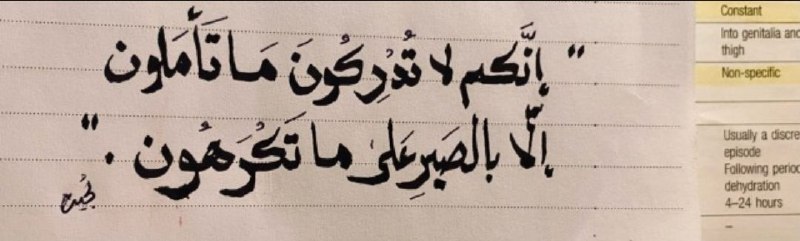 " إِنَّكم لا تُدْرِكُونَ مَا تَأمَلون
إلّا بالصَبرِ عَلىٰ ما تَكْرَهُون . "
Constant
Into genitalia and
thigh
Non-specific
Usually a discre
episode
Following period
dehydration
4–24 hours
–